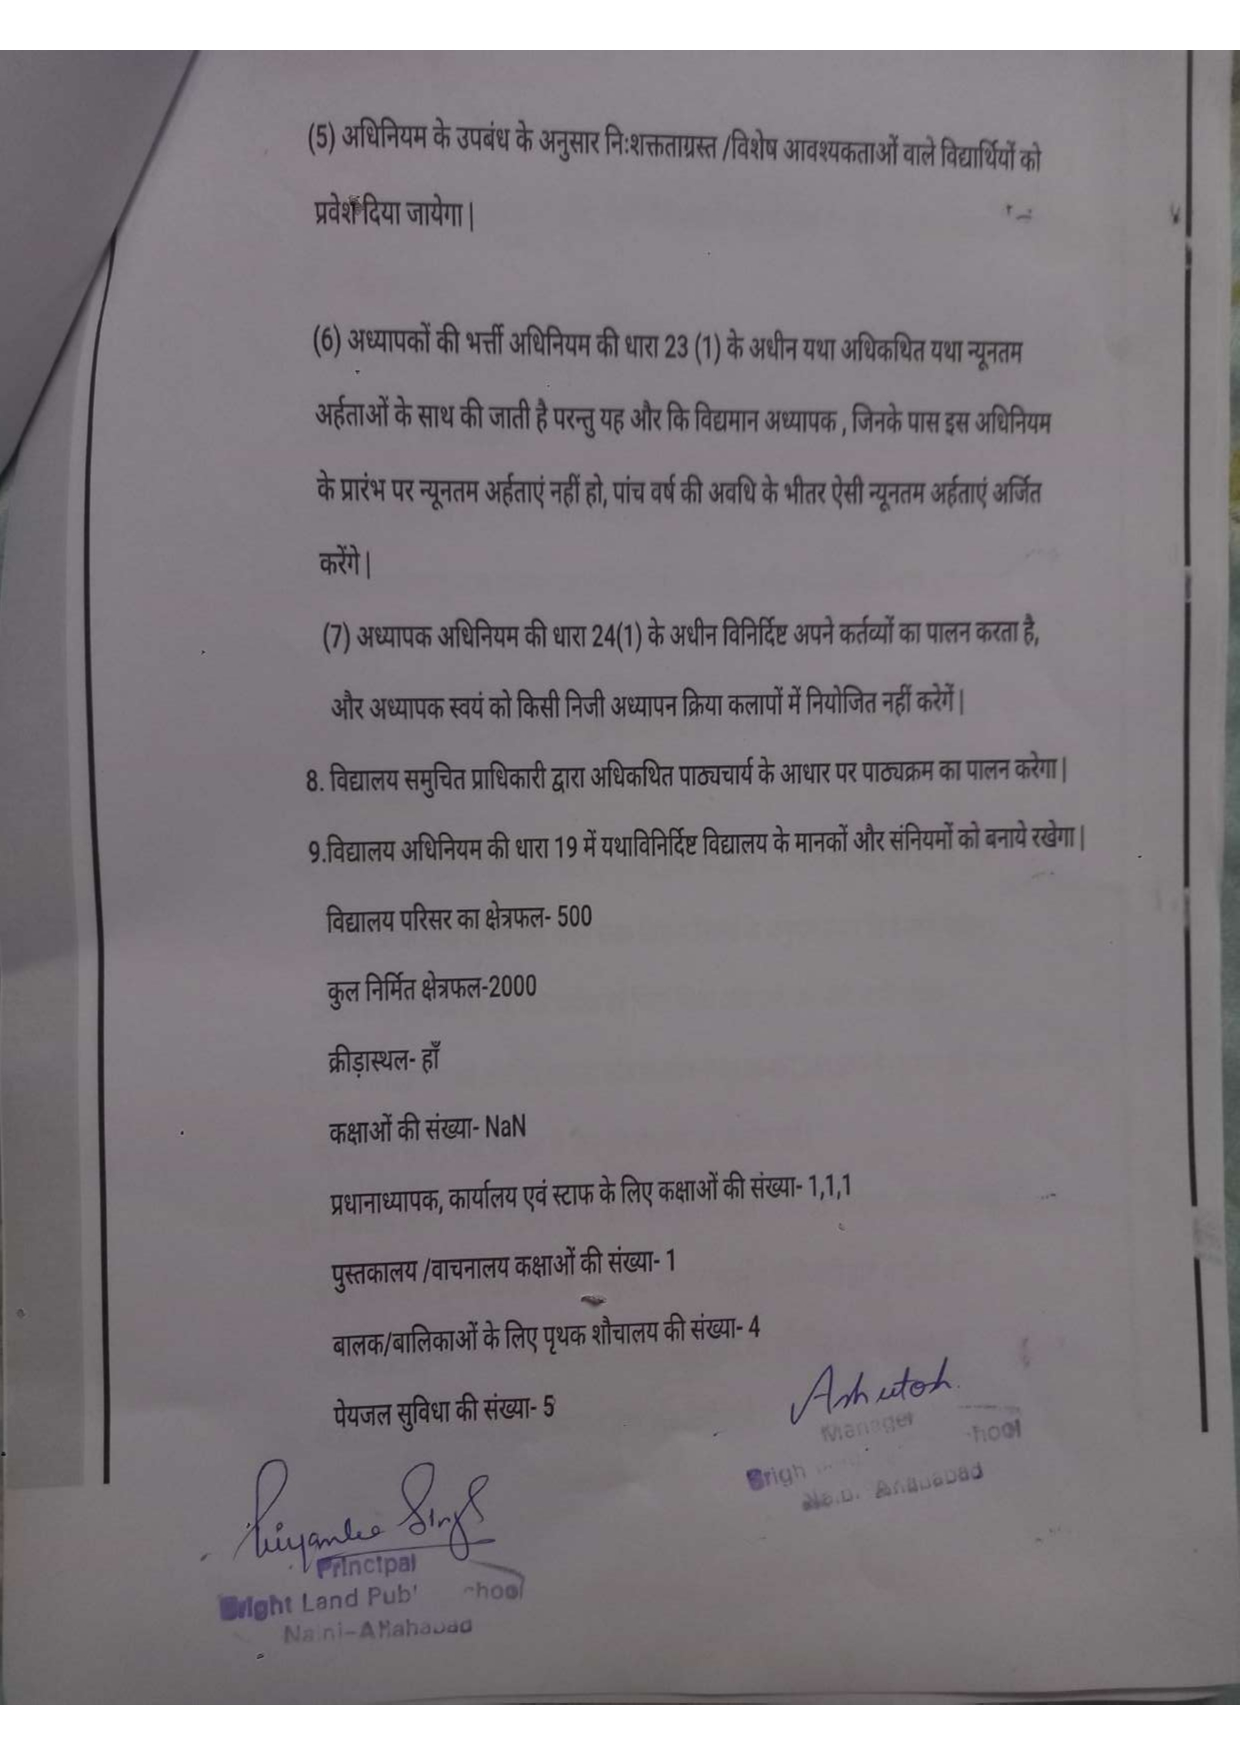 (5) अधिनियम के उपबंध के अनुसार निःशक्तताग्रस्त /विशेष आवश्यकताओं वाले विद्यार्थियों को
प्रवेश दिया जायेगा |
(6) अध्यापकों की भर्त्ती अधिनियम की धारा 23 (1) के अधीन यथा अधिकथित यथा न्यूनतम
अर्हताओं के साथ की जाती है परन्तु यह और कि विद्यमान अध्यापक , जिनके पास इस अधिनियम
के प्रारंभ पर न्यूनतम अर्हताएं नहीं हो, पांच वर्ष की अवधि के भीतर ऐसी न्यूनतम अर्हताएं अर्जित
करेंगे |
(7) अध्यापक अधिनियम की धारा 24(1) के अधीन विनिर्दिष्ट अपने कर्तव्यों का पालन करता है,
और अध्यापक स्वयं को किसी निजी अध्यापन क्रिया कलापों में नियोजित नहीं करेगें |
8. विद्यालय समुचित प्राधिकारी द्वारा अधिकथित पाठ्यचार्य के आधार पर पाठ्यक्रम का पालन करेगा |
9.विद्यालय अधिनियम की धारा 19 में यथाविनिर्दिष्ट विद्यालय के मानकों और संनियमों को बनाये रखेगा |
विद्यालय परिसर का क्षेत्रफल- 500
कुल निर्मित क्षेत्रफल-2000
क्रीड़ास्थल- हाँ
कक्षाओं की संख्या- NaN
प्रधानाध्यापक, कार्यालय एवं स्टाफ के लिए कक्षाओं की संख्या- 1,1,1
पुस्तकालय /वाचनालय कक्षाओं की संख्या- 1
बालक/बालिकाओं के लिए पृथक शौचालय की संख्या- 4
पेयजल सुविधा की संख्या- 5
Ashutosh
Manager
Priyanka Singh
Principal
Bright Land
Naini-Allahabad